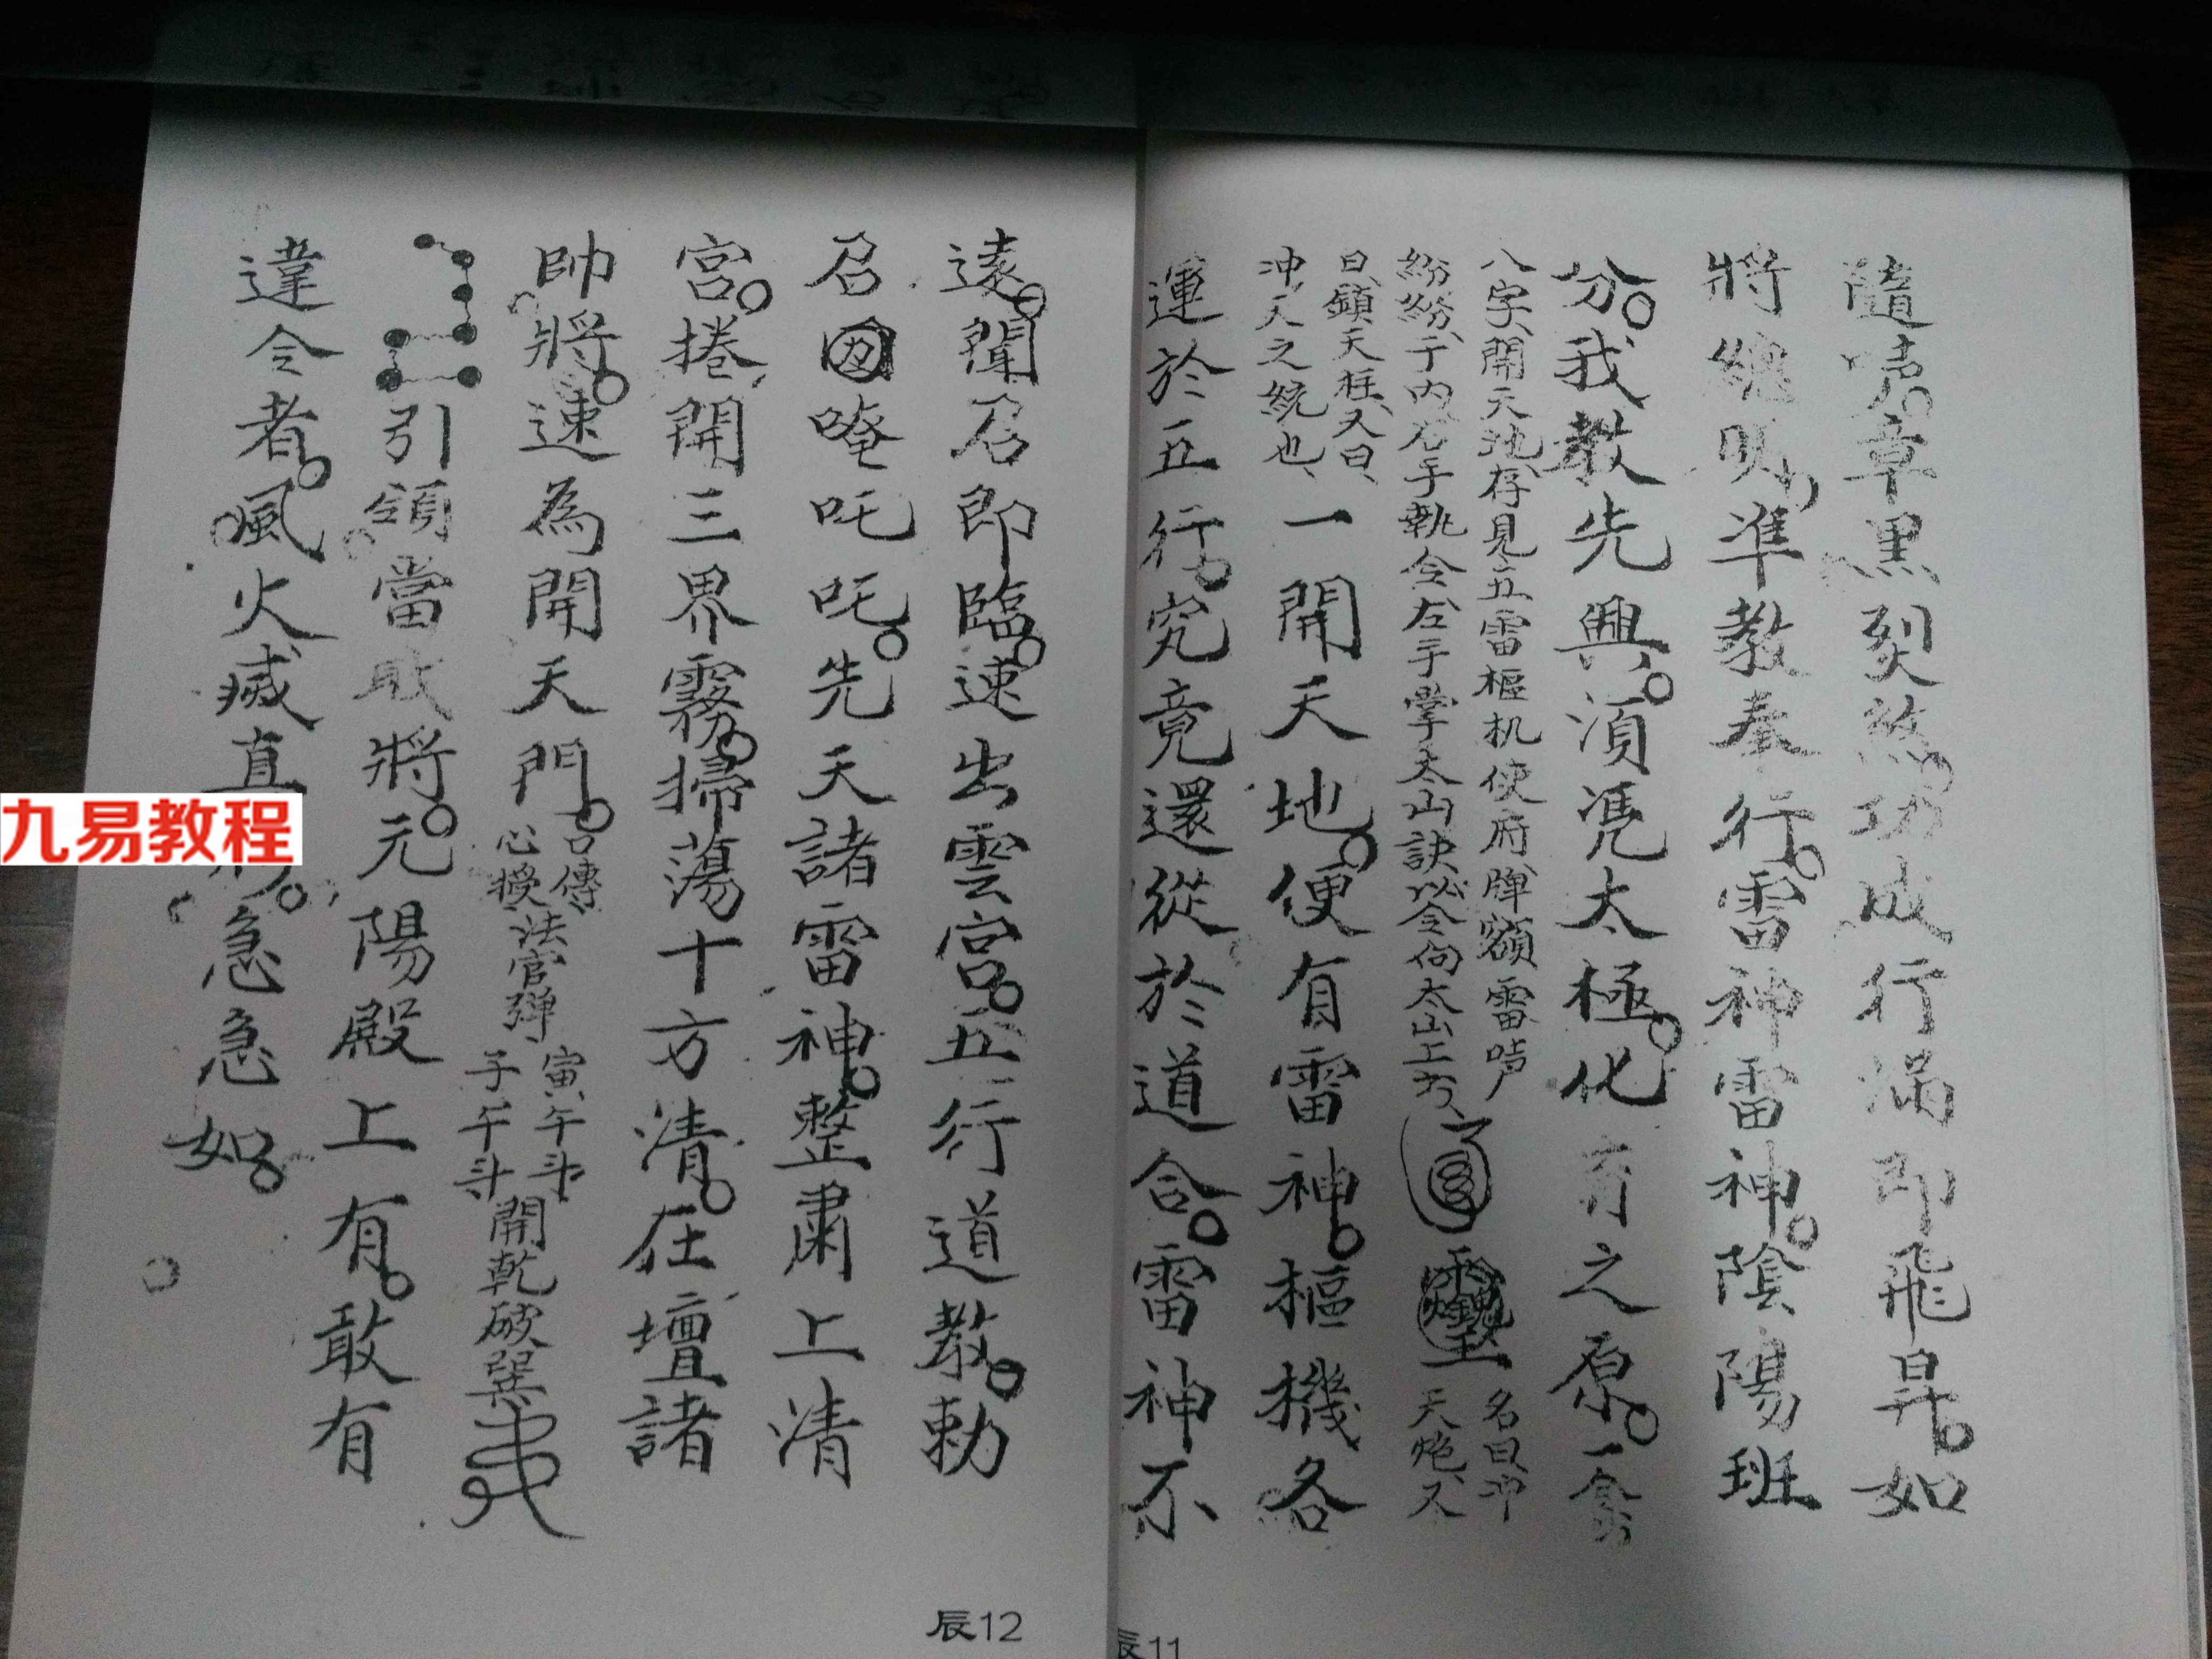 隨
章黑烈煞功成行滿即飛昇如
將總
準教奉行雷神雷神陰陽班
分我教先興須凭太極化育之原
八字開天池存見五雷樞机使府牌額雷
紛紛于内右手執令左手掌太山訣以令向太山上方
名曰冲
天炮又
曰鎖天柱又曰
冲天之統也
一開天地便有雷神樞機各
運於五行究竟還從於道合雷神不
辰11
遠聞召即臨速出雲宮五行道教勅
召唵吒吒先天諸雷神整肅上清
宮捲開三界霧掃蕩十方清在壇諸
帥將速為開天門
口傳
心授
法官弹
寅午斗
子午斗
開乾破巽
引領當
將元陽殿上有敢有
違令者風火
直
急急如
辰12
九易教程